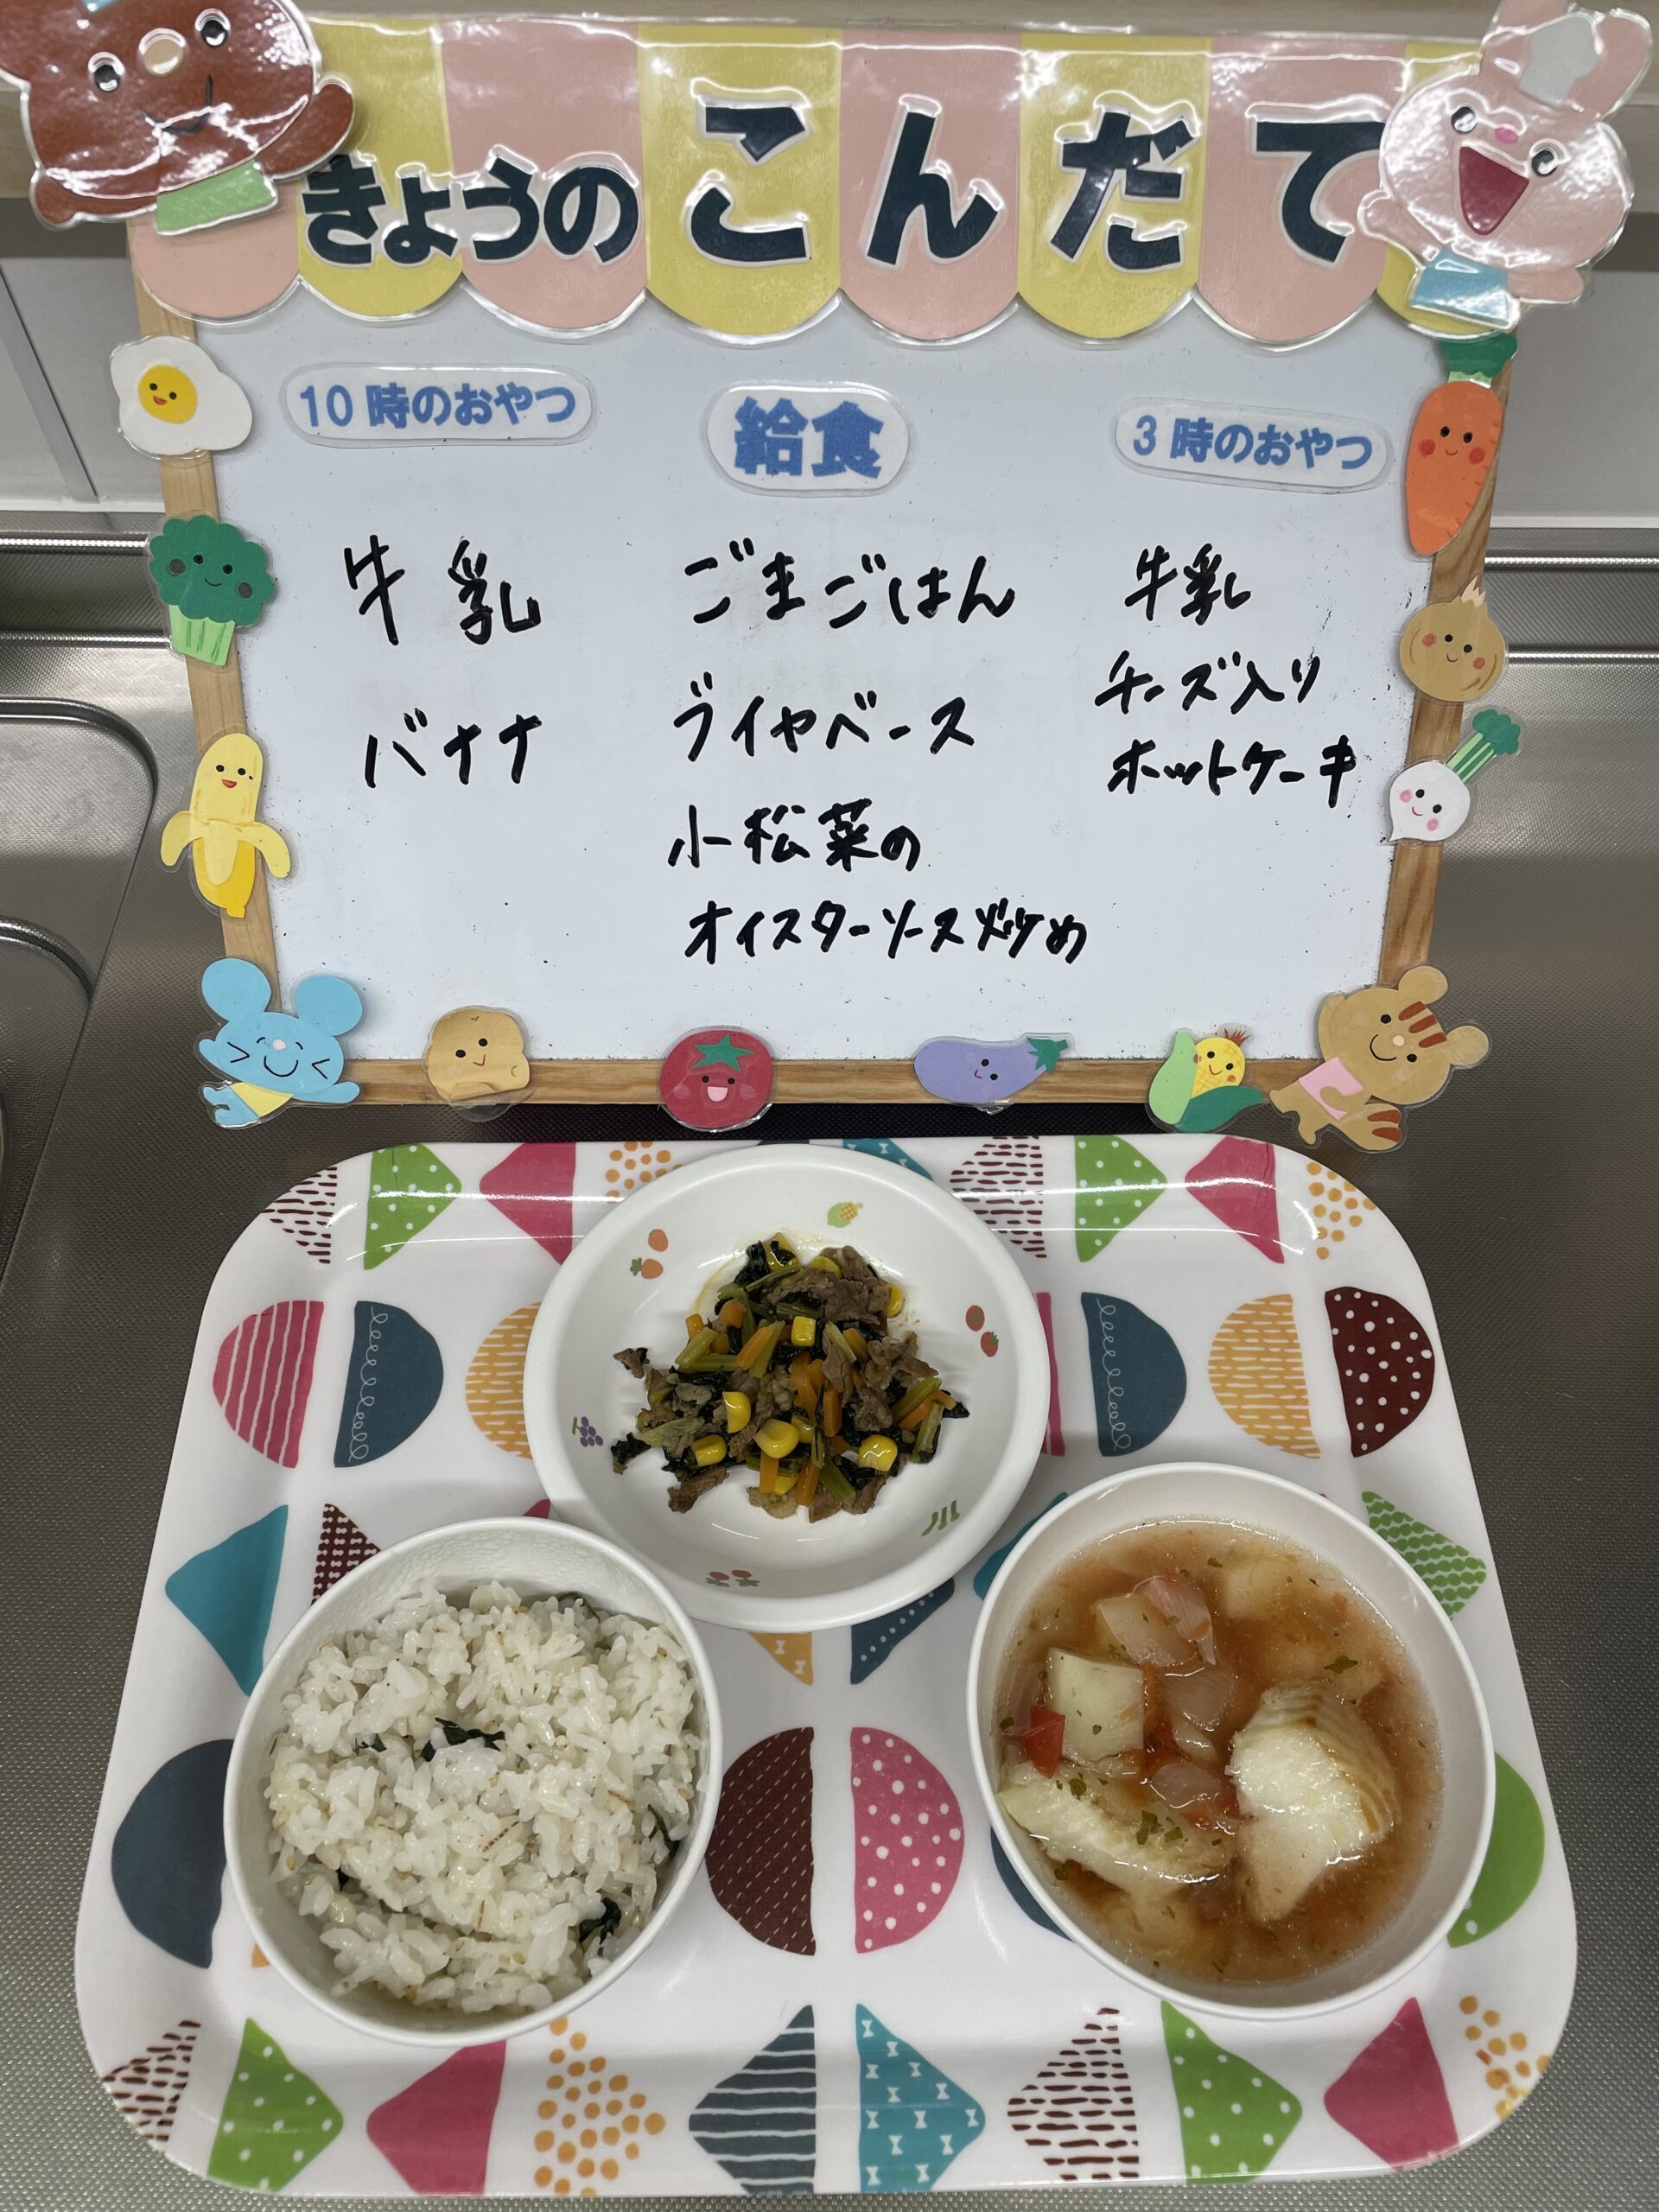 きょうの こんだて
10時のおやつ
牛乳
バナナ
給食
ごまごはん
ブイヤベース
小松菜の
オイスターソース炒め
3時のおやつ
牛乳
チーズ入り
ホットケーキ